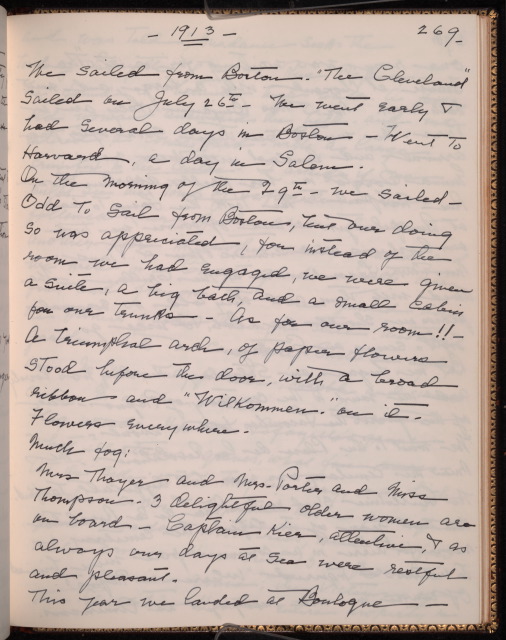 - 1913 -
269-
We sailed from Boston. "The Cleveland"
Sailed on July 26th - We went early &
had several days in Boston - Went to
Harvard, a day in Salem.
On the morning of the 29th - we sailed -
Odd to sail from Boston, but our doing
so was appreciated, for instead of the
room we had engaged, we were given
a suite, a big bath, and a small cabin
for our trunks - As for our room!! -
A triumphal arch, of paper flowers
stood before the door, with a broad
ribbon and "Wilkommen." on it.
Flowers everywhere.
Much fog:
Mrs Thayer and Mrs. Porter and Miss
Thompson. 3 delightful older women are
on board - Captain Kier, attentive, & as
always our days at sea were restful
and pleasant.
This year we landed at Boulogne -